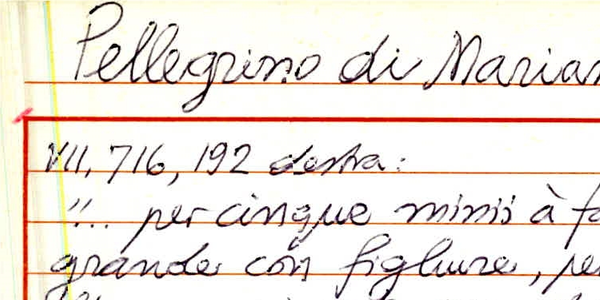 Pellegrino di Marian
VII, 716, 192 destra:
"... per cinque minii à fa
grande con figliure, pe